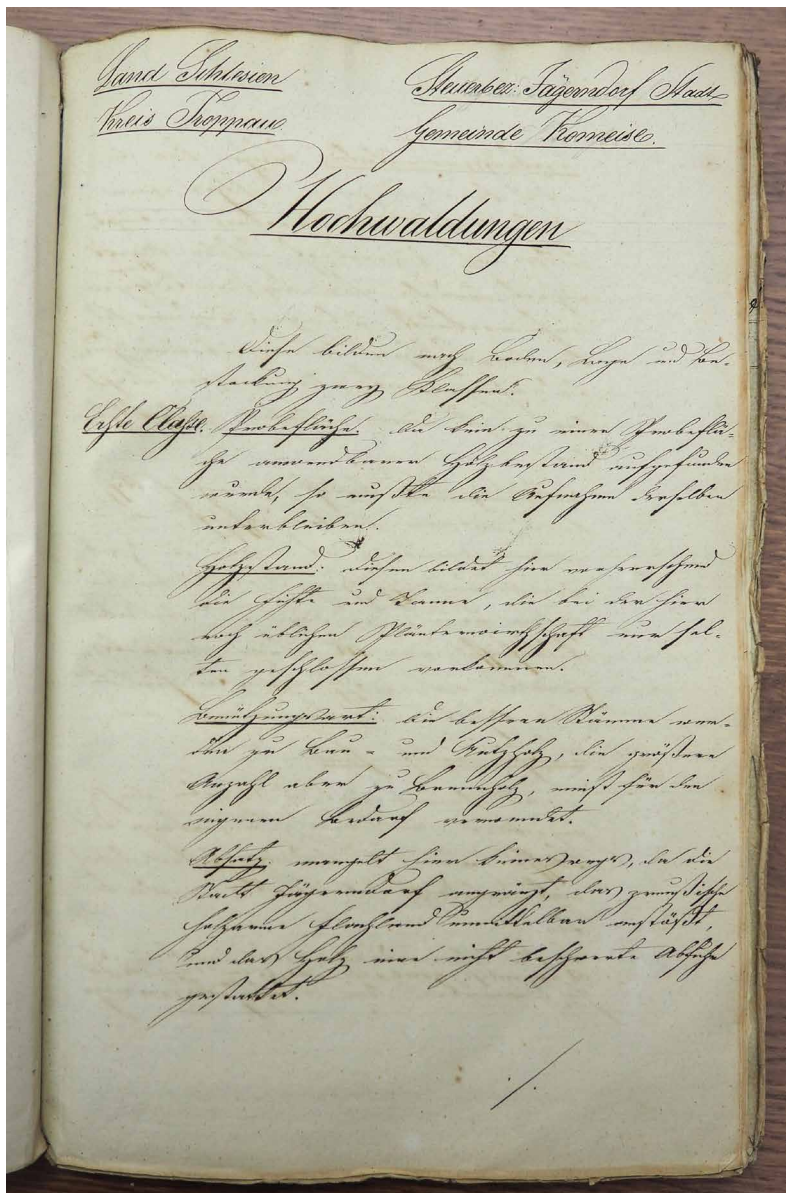 Land Schlesien
Kreis Troppau.
Steuerbez: Jägerndorf Stadt
Gemeinde Komeise.
Hochwaldungen
Diese bilden nach Boden, Lage und Be-
stockung zwey Klassen.
Erste Classe. Probefläche. Da kein zu einer Probeflä-
che anwendbarer Holzbestand aufgefunden
wurde, so mußte die Aufnahme derselben
unterbleiben.
Holzstand: Diesen bildet hier vorherrschend
die Fichte und Tanne, die bei der hier
noch üblichen Plänterwirthschaft nur sel-
ten geschlossen vorkommen.
Benützungsart: Die bessern Stämme wer-
den zu Bau- und Nutzholz, die größere
Anzahl aber zu Brennholz, meist für den
eigenen Bedarf verwendet.
Absatz: mangelt hier keineswegs, da die
Stadt Jägerndorf angränzt, das preußische
holzarme Flachland unmittelbar anstößt,
und das Holz eine nicht beschwerte Abfuhr
gestattet.
./.